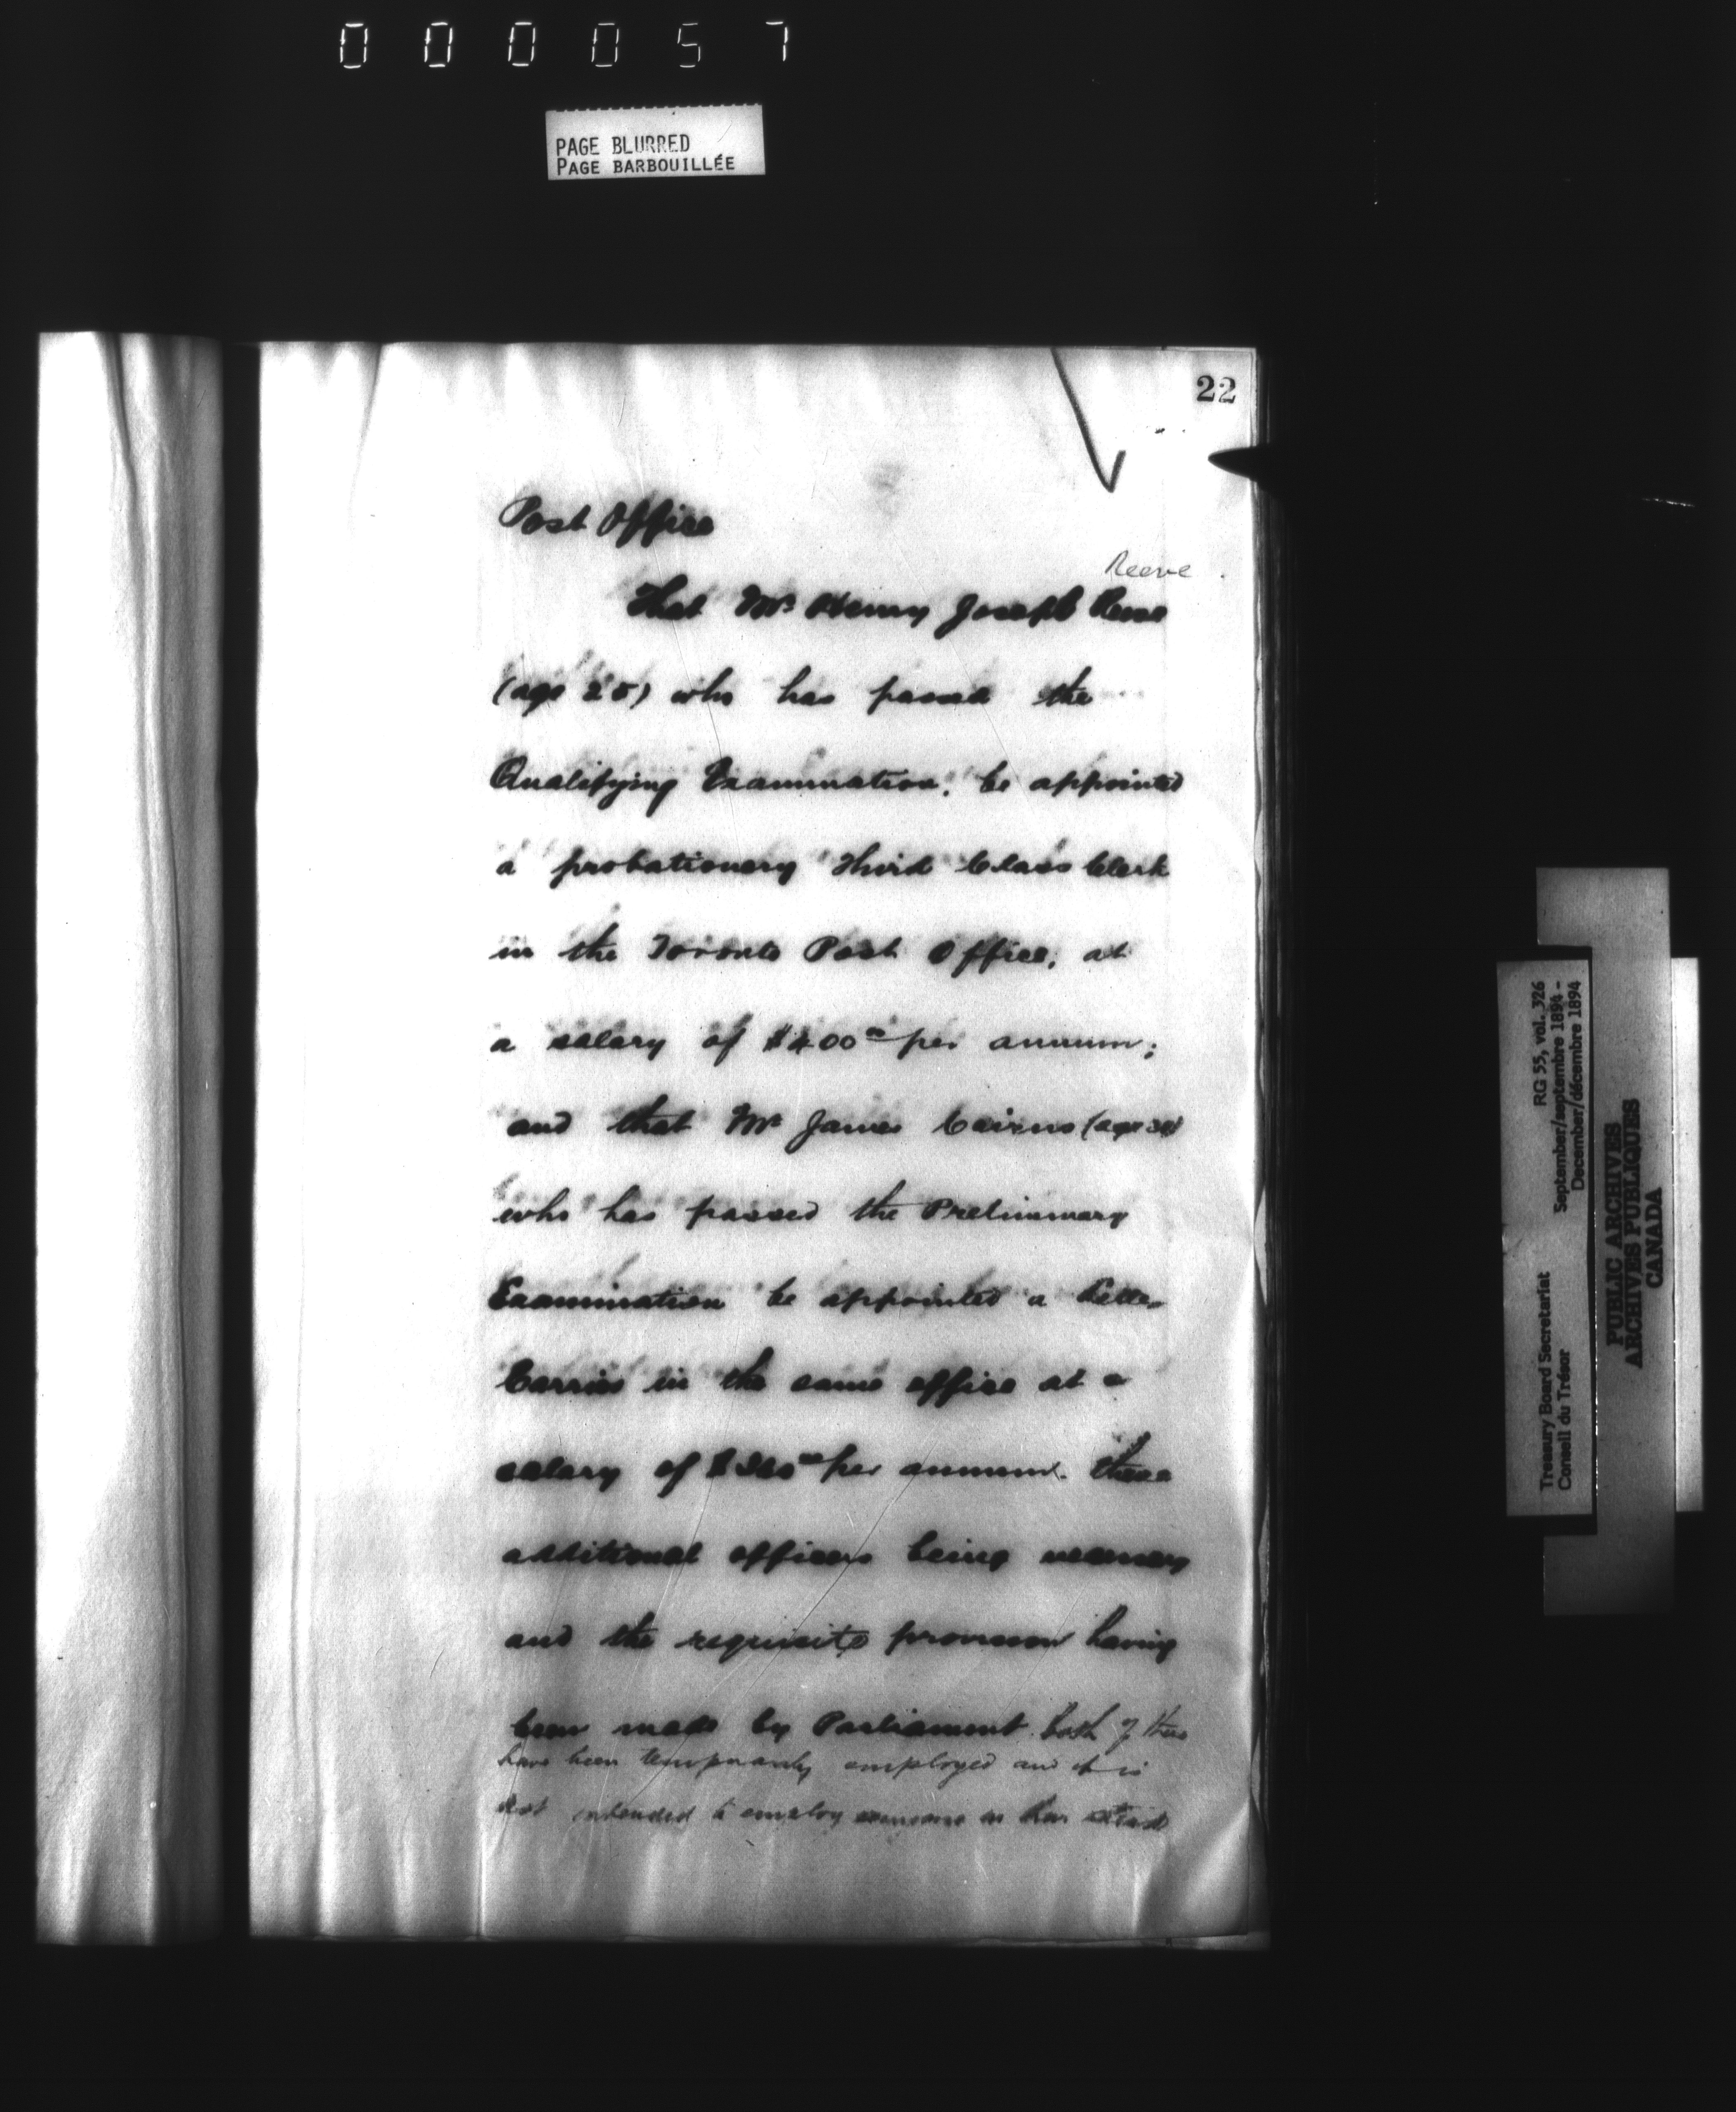 000057
PAGE BLURRED
PAGE BARBOUILLÉE
22
Post Office
Reeve
That Mr Henry Joseph Reeve
(age 25) who has passed the
Qualifying Examination, be appointed
a probationary Third Class Clerk
in the Toronto Post Office, at
a salary of $400 00 per annum;
and that Mr James Cairns (age
who has passed the Preliminary
Examination be appointed a Letter
Carrier in the same office at a
salary of $360 00 per annum. these
additional officers being necessary
and the requisite provision having
been made by Parliament. both of these
have been temporarily employed and it is
not intended to employ someone in their stead
RG 55, vol. 326
September/septembre 1894 -
December/décembre 1894
Treasury Board Secretariat
Conseil du Trésor
PUBLIC ARCHIVES
ARCHIVES PUBLIQUES
CANADA